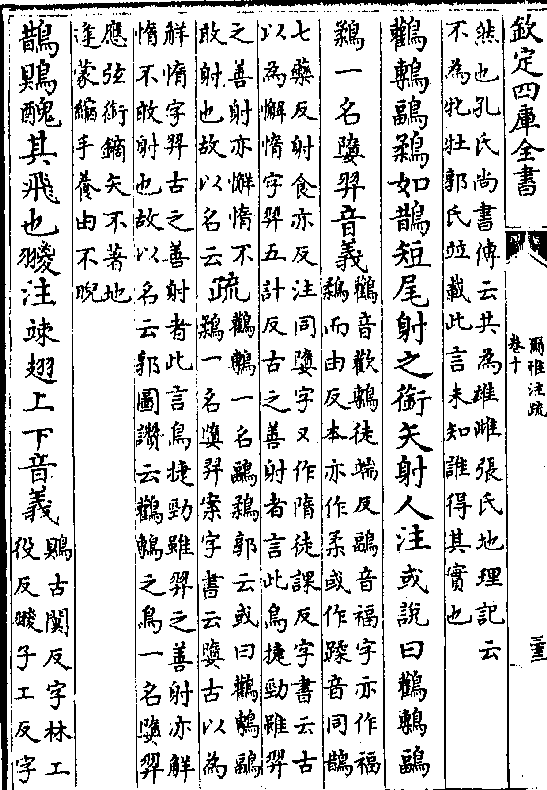 欽定四庫全書
爾雅注疏
卷十
三
然也孔氏尚書傳云共為雄雌張氏地理記云
不為牝牡郭氏並載此言未知誰得其實也
鸛鷒鶝鶔如鵲短尾射之銜矢射人注或說曰鸛鷒鶝
鶔一名𡡉羿音義
鸛音歡鷒徒端反鶝音福字亦作福
鶔而由反本亦作柔或作蹂音同鵲
七藥反射食亦反注同𡡉字又作隋徒課反字書云古
以為懈惰字羿五計反古之善射者言此鳥捷勁雖羿
之善射亦懈惰不
敢射也故以名云
疏
鸛鷒一名鶝鶔郭云或曰鸛鷒鶝
鶔一名𡡉羿案字書云𡡉古以為
解惰字羿古之善射者此言鳥捷勁雖羿之善射亦解
惰不敢射也故以名云郭圖讚云鸛鷒之鳥一名𡡉羿
應弦銜鏑矢不著地
逄蒙縮手養由不睨
鵲鶪醜其飛也翪注竦翅上下音義
鶪古闃反字林工
役反翪子工反字